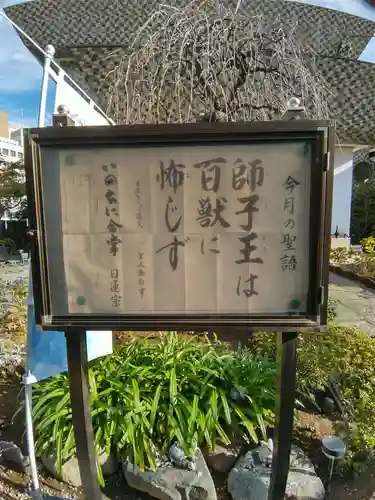 今月の聖語
師子王は
百獣に
怖じず
いのちに合掌 日蓮宗